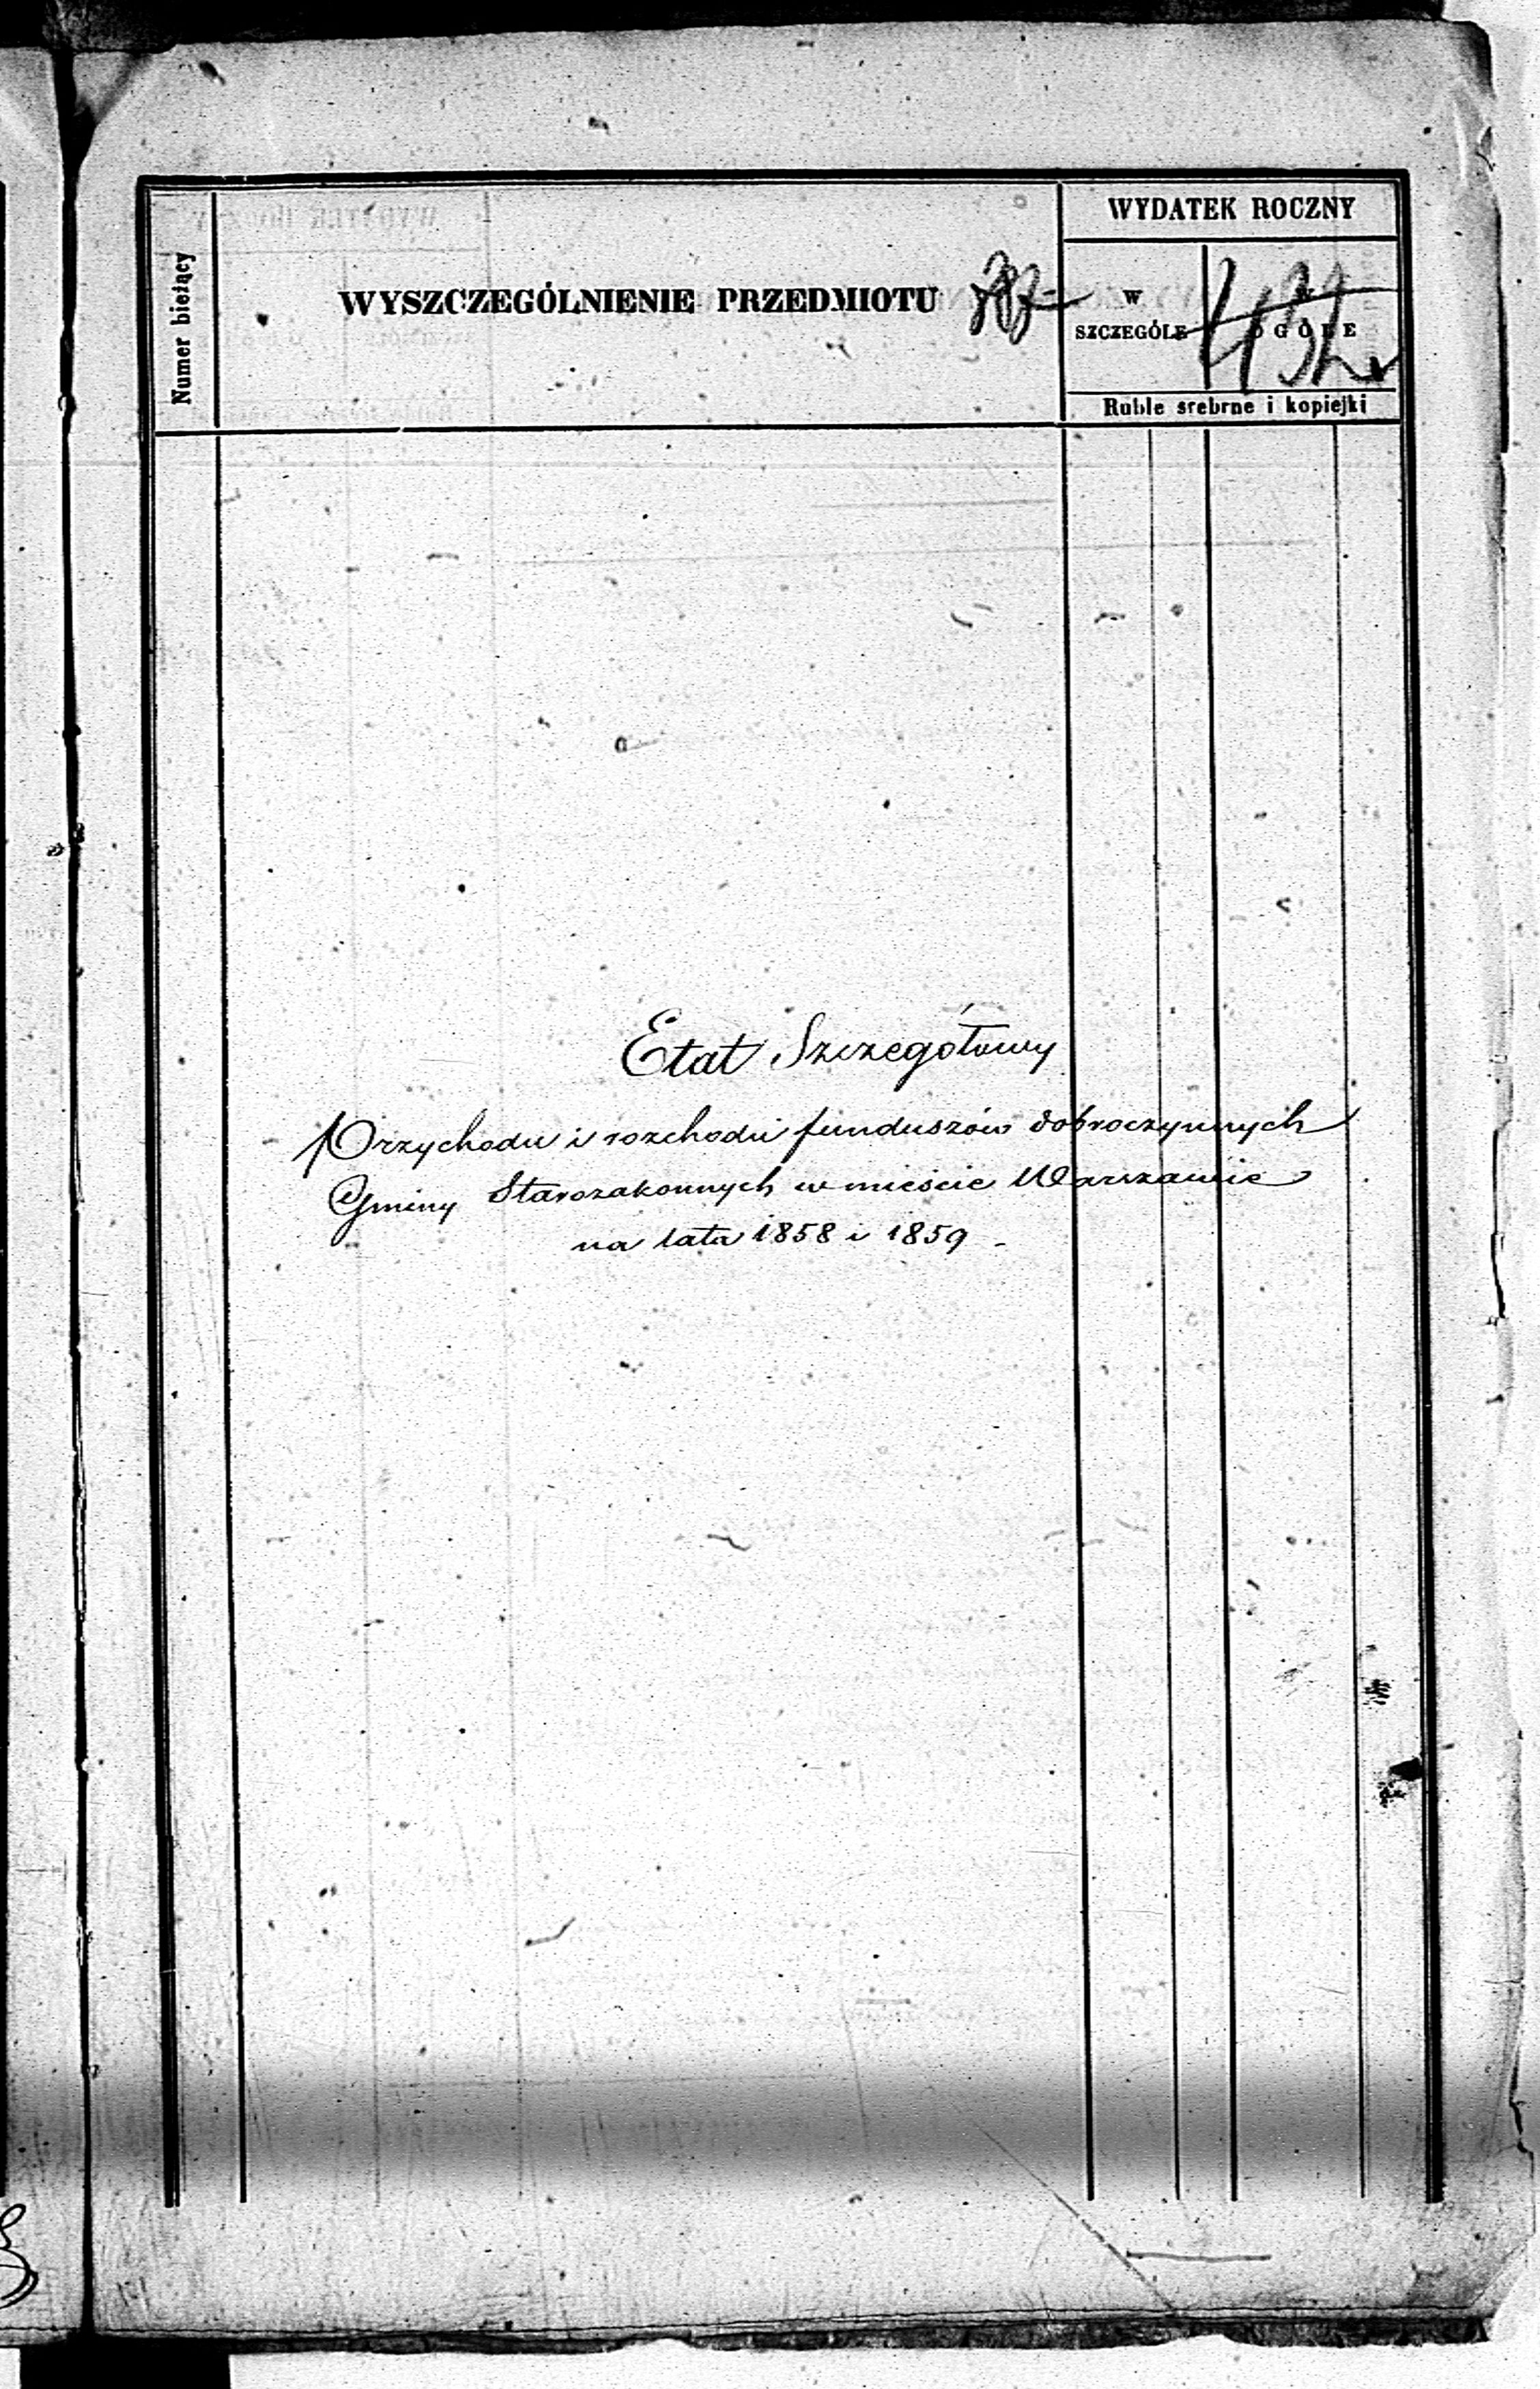 Numer bieżący
WYSZCZEGÓLNIENIE PRZEDMIOTU
WYDATEK ROCZNY
W
SZCZEGÓLE
OGÓLE
Ruble srebrne i kopiejki
Etat Szczegółowy
Przychodu i rozchodu funduszów dobroczynnych
Gminy Starozakonnych w mieście Warszawie
na lata 1858 i 1859 -